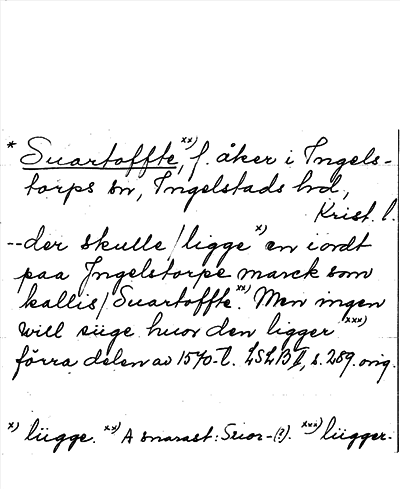 * Suartoffte,xx) f. åker i Ingels-
torps sn, Ingelstads hd,
Krist. l.
--der skulle / ligge x) en iordt
paa Jngelstorpe marck som
kallis / Suartoffte.xx) Men ingen
will siige huor den ligger xxx)
förra delen av 1570-t. LSLB I, s. 289. orig.
x) liigge. xx) A snarast: Suor-(?). xxx) liigger.